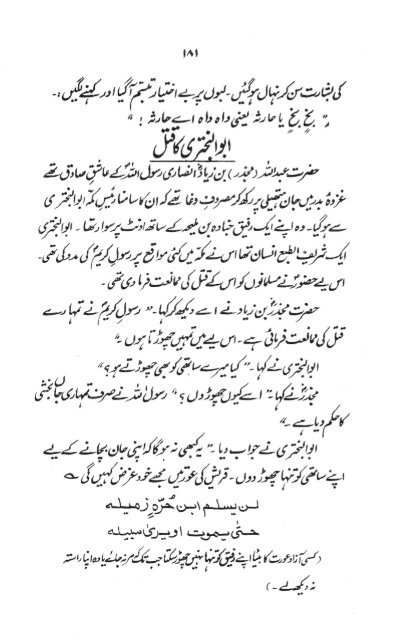 ۱۸۱
کی بشارت سن کر نہال ہوگئیں۔ لبوں پر بے اختیار تبسّم آگیا اور کہنے لگیں :۔
"بخٍ بخٍ یا حارثہ یعنی واہ واہ اے حارثہ !"
ابوالبختری کا قتل
حضرت عبداللہؓ (مجذر) بن زیادؓ انصاری رسول اللہؐ کے عاشقِ صادق تھے
غزوۂ بدر میں جان ہتھیلی پر رکھ کر مصروفِ وغا تھے کہ ان کا سامنا رئیسِ مکہ ابوالبختری
سے ہوگیا۔ وہ اپنے ایک رفیق جنادہ بن ملیحہ کے ساتھ اونٹ پر سوار تھا۔ ابوالبختری
ایک شریف الطبع انسان تھا اس نے مکہ میں کئی مواقع پر رسولِ کریمؐ کی مدد کی تھی۔
اس لیے حضورؐ نے مسلمانوں کو اس کے قتل کی ممانعت فرمادی تھی۔
حضرت مجذرؓ بن زیاد نے اسے دیکھ کر کہا۔ "رسولِ کریمؐ نے تمہارے
قتل کی ممانعت فرمائی ہے۔ اس لیے میں تمہیں چھوڑتا ہوں۔"
ابوالبختری نے کہا۔ "کیا میرے ساتھی کو بھی چھوڑتے ہو؟"
مجذرؓ نے کہا۔ "اسے کیوں چھوڑوں؟" رسول اللہؐ نے صرف تمہاری جاں بخشی
کا حکم دیا ہے۔"
ابوالبختری نے جواب دیا۔ "یہ کبھی نہ ہوگا کہ اپنی جان بچانے کے لیے
اپنے ساتھی کو تنہا چھوڑ دوں۔ قریش کی عورتیں مجھے خود غرض کہیں گی
لن یسلم ابن حُرّۃٍ زمیلہ
حتٰی یموت او یریٰ سبیلہ
(کسی آزاد عورت کا بیٹا اپنے رفیق کو تنہا نہیں چھوڑ سکتا جب تک کہ مر نہ جائے یا وہ اپنا راستہ
نہ دیکھ لے۔)